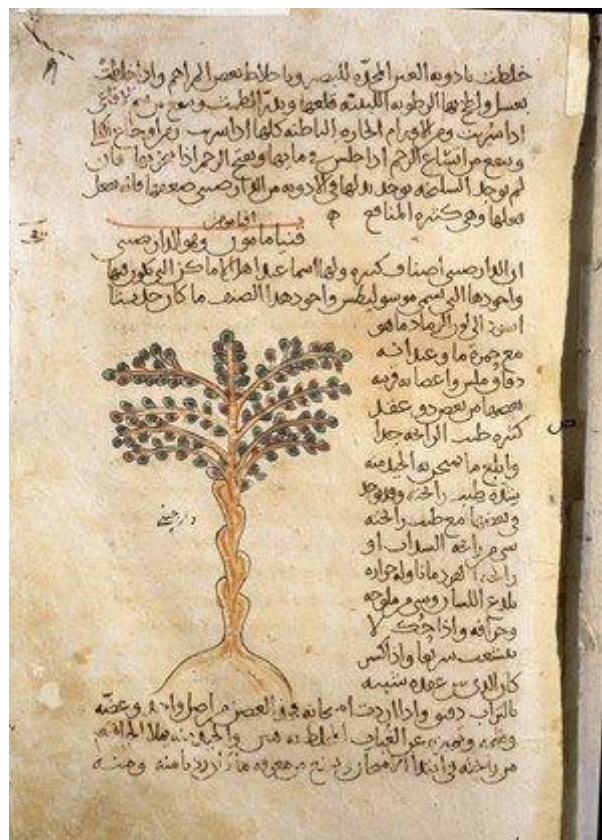 خلطت بادويه العين المحدّه للبصر وباخلاط بعض المراهم واذا خلطت
بعسل ولطخ بها الرطوبه اللبنيه قلعها ويدرّ الطمث وينفع من
اذا شربت ومن الاورام الحاره الباطنه كلها اذا شربت ومن اوجاع الكلا
وينفع من اتساع الرحم اذا جلس في مايها ويفتح الرحم اذا تدخن بها فان
لم توجد السليخه يوجد بدلها في الادويه من الدارصيني ضعفها فانه يفعل
فعلها وهي كثيره المنافع
اقنامومن
قنيامامون وهو الدارصيني
ان الدارصيني اصناف كثيره ولها اسما عند اهل الاماكن التي تكون فيها
واجودها الذي يسمى موسوليطس واجود هذا الصنف ما كان حديثا
اسود الى لون الرماد ما هو
مع حمرة ما وعيدانه
دقاق ملس واغصانه قريبه
بعضها من بعض ذو عقد
كثيره طيب الرائحه جدا
وابلغ ما يمتحن به الجيد منه
بشده طيب رائحته وقد يوجد
في بعضها مع طيب رائحته
شي من رائحه السداب او
رائحه القردمانا وله حراره
يلدع اللسان وشي من ملوحه
وحرافه واذا حك لا
يتشعب سريعا واذا كسر
كان الذي بين عقده شبيه
دارجيني
بالتراب دقيق واذا اردت امتحانه فخذ الغصن من اصل واحد
من رائحته في ابتدا الامتحان يمنع من معرفه ما